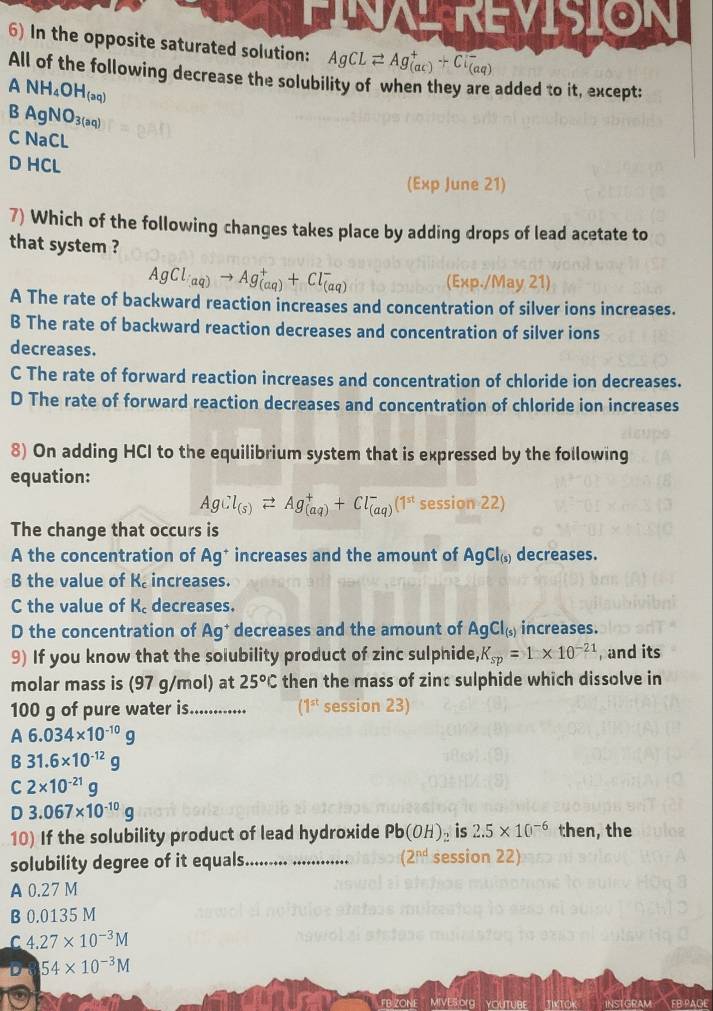 FINAL REVISION
6) In the opposite saturated solution: AgCL ⇄ Ag⁺(ac) + Cl⁻(aq)
All of the following decrease the solubility of when they are added to it, except:
A NH₄OH(aq)
B AgNO₃(aq)
C NaCL
D HCL
(Exp June 21)
7) Which of the following changes takes place by adding drops of lead acetate to
that system ?
AgCl(aq) → Ag⁺(aq) + Cl⁻(aq) (Exp./May 21)
A The rate of backward reaction increases and concentration of silver ions increases.
B The rate of backward reaction decreases and concentration of silver ions
decreases.
C The rate of forward reaction increases and concentration of chloride ion decreases.
D The rate of forward reaction decreases and concentration of chloride ion increases
8) On adding HCl to the equilibrium system that is expressed by the following
equation:
AgCl(s) ⇄ Ag⁺(aq) + Cl⁻(aq) (1st session 22)
The change that occurs is
A the concentration of Ag⁺ increases and the amount of AgCl(s) decreases.
B the value of Kc increases.
C the value of Kc decreases.
D the concentration of Ag⁺ decreases and the amount of AgCl(s) increases.
9) If you know that the solubility product of zinc sulphide, Ksp = 1 × 10⁻²¹, and its
molar mass is (97 g/mol) at 25°C then the mass of zinc sulphide which dissolve in
100 g of pure water is............ (1st session 23)
A 6.034×10⁻¹⁰ g
B 31.6×10⁻¹² g
C 2×10⁻²¹ g
D 3.067×10⁻¹⁰ g
10) If the solubility product of lead hydroxide Pb(OH)₂ is 2.5 × 10⁻⁶ then, the
solubility degree of it equals......... ............. (2nd session 22)
A 0.27 M
B 0.0135 M
C 4.27 × 10⁻³M
D 8.54 × 10⁻³M
FB ZONE MIVES.org YOUTUBE TIKTOK INSTGRAM FB PAGE